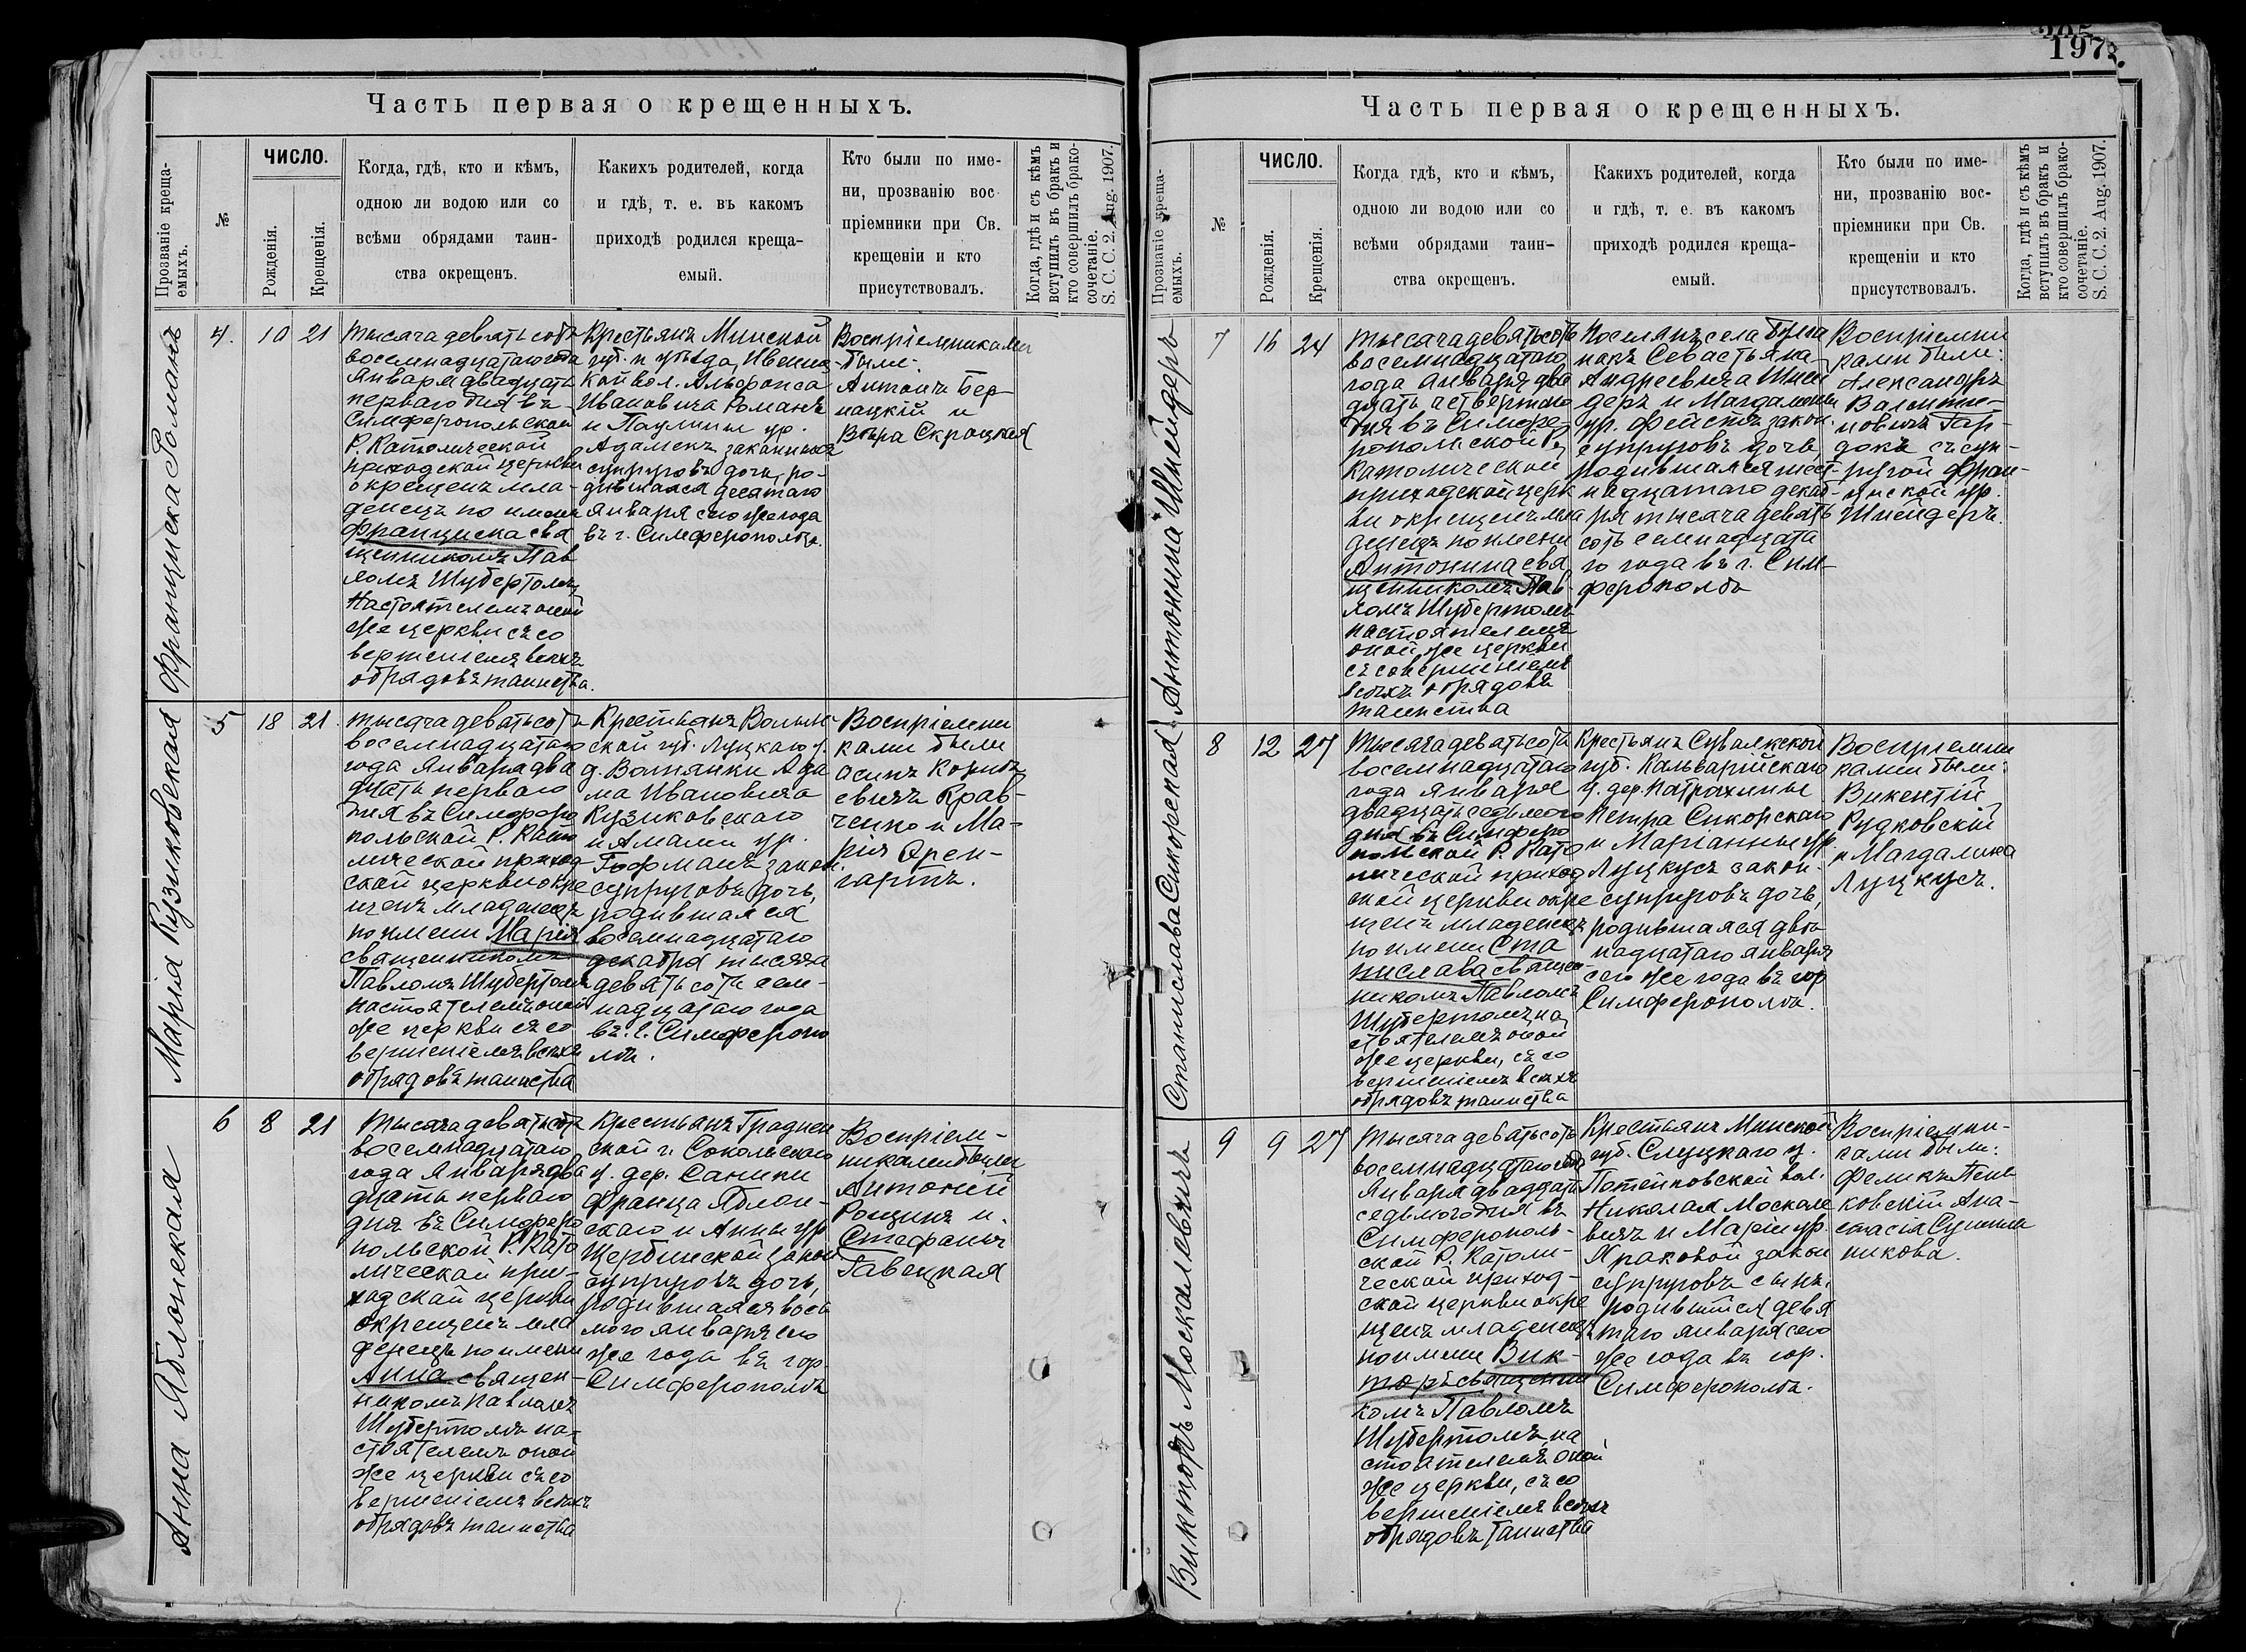 197
Часть первая о крещенныхъ.
Прозваніе креща-
емыхъ.
№
ЧИСЛО.
Рожденія.
Крещенія.
Когда, гдѣ, кто и кѣмъ,
одною ли водою или со
всѣми обрядами таин-
ства окрещенъ.
Какихъ родителей, когда
и гдѣ, т. е. въ какомъ
приходѣ родился креща-
емый.
Кто были по име-
ни, прозванію вос
пріемники при Св.
крещеніи и кто
присутствовалъ.
Когда, гдѣ и съ кѣмъ
вступилъ въ бракъ и
кто совершилъ брако-
сочетаніе.
S. C. C. 2. Aug. 1907.
Франциска Романъ
4.
10
21
тысяча девятьсотъ
восемнадцатаго года
Января двадцать
перваго дня въ
Симферопольской
Р. Католической
приходской церкви
окрещенъ мла-
денецъ по имени
Франциска свя
щенникомъ Пав
ломъ Шубертомъ
Настоятелемъ оной
же церкви съ со
вершеніемъ всѣхъ
обрядовъ таинства.
Крестьянъ Минской
губ. и уѣзда, Ивенец
кой вол. Альфонса
Ивановича Романъ
и Паулины ур.
Адамекъ законныхъ
супруговъ дочь, ро-
дившаяся десятаго
января сего же года
въ г. Симферополѣ.
Воспріемниками
были:
Антонъ Бер
нацкій и
Вѣра Скроцкая
Марія Кузиковская
5
18
21
тысяча девятьсотъ
восемнадцатаго
года Января два
дцать перваго
дня въ Симферо
польской Р. Като
лической приход
ской церкви окре
щенъ младенецъ
по имени Марія
священникомъ
Павломъ Шубертомъ
настоятелемъ оной
же церкви съ со
вершеніемъ всѣхъ
обрядовъ таинства
Крестьянъ Волын-
ской губ. Луцкаго у.
д. Волянки Ада
ма Ивановича
Кузиковскаго
и Амаліи ур.
Гофманъ закон.
супруговъ дочь,
родившаяся
восемнадцатаго
декабря тысяча
девятьсотъ сем-
надцатаго года
въ г. Симферопо
лѣ.
Воспріемни
ками были
Осипъ Козьм
евичъ Крав-
ченко и Ма-
рія Орен-
гартъ.
Анна Яблонская
6
8
21
Тысяча девятьсотъ
восемнадцатаго
года Января два
дцать перваго
дня въ Симферо
польской Р. Като
лической при-
ходской церкви
окрещенъ мла
денецъ по имени
Анна священ-
никомъ Павломъ
Шубертомъ на-
стоятелемъ оной
же церкви съ со
вершеніемъ всѣхъ
обрядовъ таинства
Крестьянъ Гроднен
ской г. Сокольскаго
у. дер. Саники
Франца Яблон-
скаго и Анны ур.
Щербинской закон
супруговъ дочь,
родившаяся вось
мого января сего
же года въ гор.
Симферополѣ
Воспріем-
никами были
Антоній
Рощинъ и
Стефанія
Гавецкая
Часть первая о крещенныхъ.
Прозваніе креща-
емыхъ.
№
ЧИСЛО.
Рожденія.
Крещенія.
Когда гдѣ, кто и кѣмъ,
одною ли водою или со
всѣми обрядами таин-
ства окрещенъ.
Какихъ родителей, когда
и гдѣ, т. е. въ какомъ
приходѣ родился креща-
емый.
Кто были по име-
ни, прозванію вос-
пріемники при Св.
крещеніи и кто
присутствовалъ.
Когда, гдѣ и съ кѣмъ
вступилъ въ бракъ и
кто совершилъ брако-
сочетаніе.
S. C. C. 2. Aug. 1907.
Антонина Шнейдеръ
7
16
24
тысяча девятьсотъ
восемнадцатаго
года Января два
дцать четвертаго
дня въ Симферо
польской Р.
Католической
приходской церк
ви окрещенъ мла
денецъ по имени
Антонина свя
щенникомъ Пав-
ломъ Шубертомъ
настоятелемъ
оной же церкви
съ совершеніемъ
всѣхъ обрядовъ
таинства
Поселянъ села Булга
накъ Севастьяна
Андреевича Шней
деръ и Магдалины
ур. Фейстъ закон.
супруговъ дочь,
родившаяся шест-
надцатаго декаб-
ря тысяча девять
сотъ семнадцата
го года въ г. Сим-
ферополѣ
Воспріемни
ками были:
Александръ
Валенти-
новичъ Гар-
докъ съ суп-
ругой Фран-
циской ур.
Шнейдеръ.
Станислава Сикорская
8
12
27
Тысяча девятьсотъ
восемнадцатаго
года Января
двадцать седьмого
дня въ Симферо
польской Р. Като
лической приход
ской церкви окре
щенъ младенецъ
по имени Ста
нислава священ-
никомъ Павломъ
Шубертомъ на
стоятелемъ оной
же церкви, съ со
вершеніемъ всѣхъ
обрядовъ таинства
Крестьянъ Сувалкской
губ. Кальварійскаго
у. дер. Патрахины
Петра Сикорскаго
и Маріанны ур.
Луцкусъ закон-
супруговъ дочь,
родившаяся двѣ
надцатаго января
сего же года въ гор
Симферополѣ.
Воспріемни
ками были:
Викентій
Рудковскій
и Магдалина
Луцкусъ.
Викторъ Москалевичъ
9
9
27
тысяча девятьсотъ
восемнадцатаго года
Января двадцать
седьмого дня въ
Симферополь-
ской Р. Католи-
ческой приход-
ской церкви окре
щенъ младенецъ
по имени Вик-
торъ священни
комъ Павломъ
Шубертомъ, на
стоятелемъ оной
же церкви, съ со
вершеніемъ всѣхъ
обрядовъ таинства
Крестьянъ Минской
губ. Слуцкаго у.
Потейковской вол.
Николая Москале
вичъ и Маріи ур.
Храковой закон
супруговъ сынъ,
родившійся девя
таго января сего
же года въ гор.
Симферополѣ.
Воспріемни-
ками были:
Феликъ Пень
ковскій Ана-
стасія Сушин
никова.